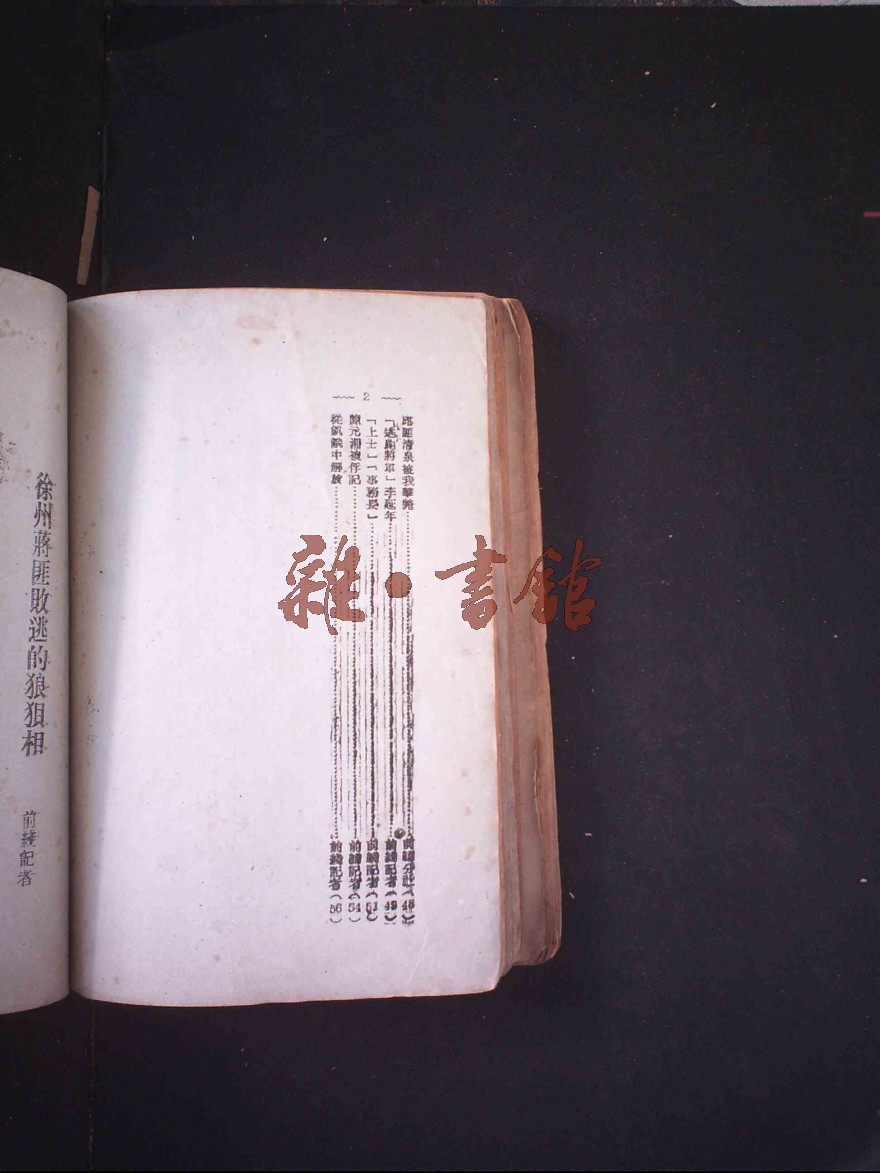 2
邱匪清泉被我擊斃……前綫分社(48)
「逃跑將軍」李延年……前綫記者(49)
「上士」「事務長」……前綫記者(51)
陳元湘被俘記……前綫記者(54)
從飢餓中解放……前綫記者(56)
徐州蔣匪敗逃的狼狽相
前綫記者
雜·書館